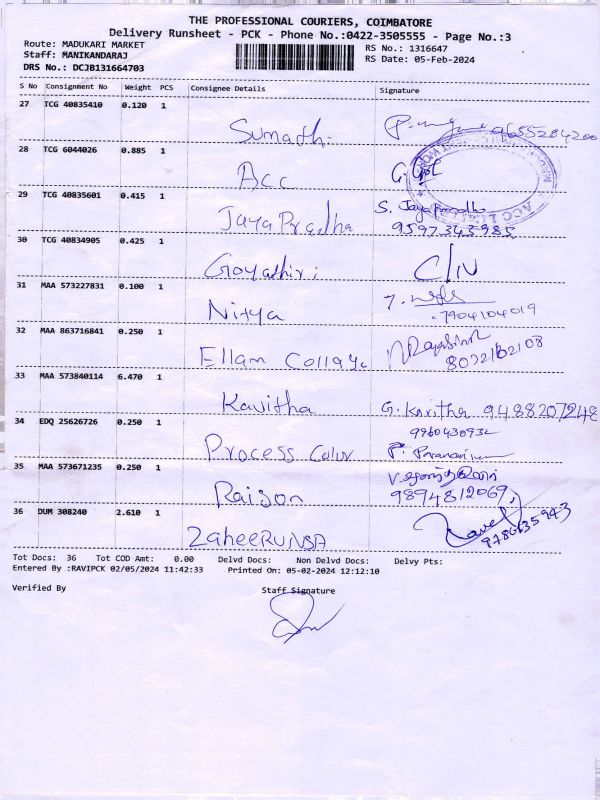 THE PROFESSIONAL COURIERS, COIMBATORE
Delivery Runsheet - PCK - Phone No.:0422-3505555 - Page No.:3
Route: MADUKARI MARKET RS No.: 1316647
Staff: MANIKANDARAJ RS Date: 05-Feb-2024
DRS No.: DCJB131664703
S No Consignment No Weight PCS Consignee Details Signature
27 TCG 40835410 0.120 1
Sumathi 9655284200
28 TCG 6044026 0.885 1
Acc G.
29 TCG 40835601 0.415 1
JayaPradha S. JayaPradha
9597343985
30 TCG 40834905 0.425 1
Gayathiri C/N
31 MAA 573227831 0.100 1
Nitya
7904104019
32 MAA 863716841 0.250 1
Ellam
33 MAA 573840114 6.470 1
Kavitha G. Kavitha 9488207248
34 EDQ 25626726 0.250 1
Process Color
35 MAA 573671235 0.250 1
Raison 9894812069
36 DUM 308240 2.610 1
ZaheeRUNSA
Tot Docs: 36 Tot COD Amt: 0.00 Delvd Docs: Non Delvd Docs: Delvy Pts:
Entered By :RAVIPCK 02/05/2024 11:42:33 Printed On: 05-02-2024 12:12:10
Verified By Staff Signature